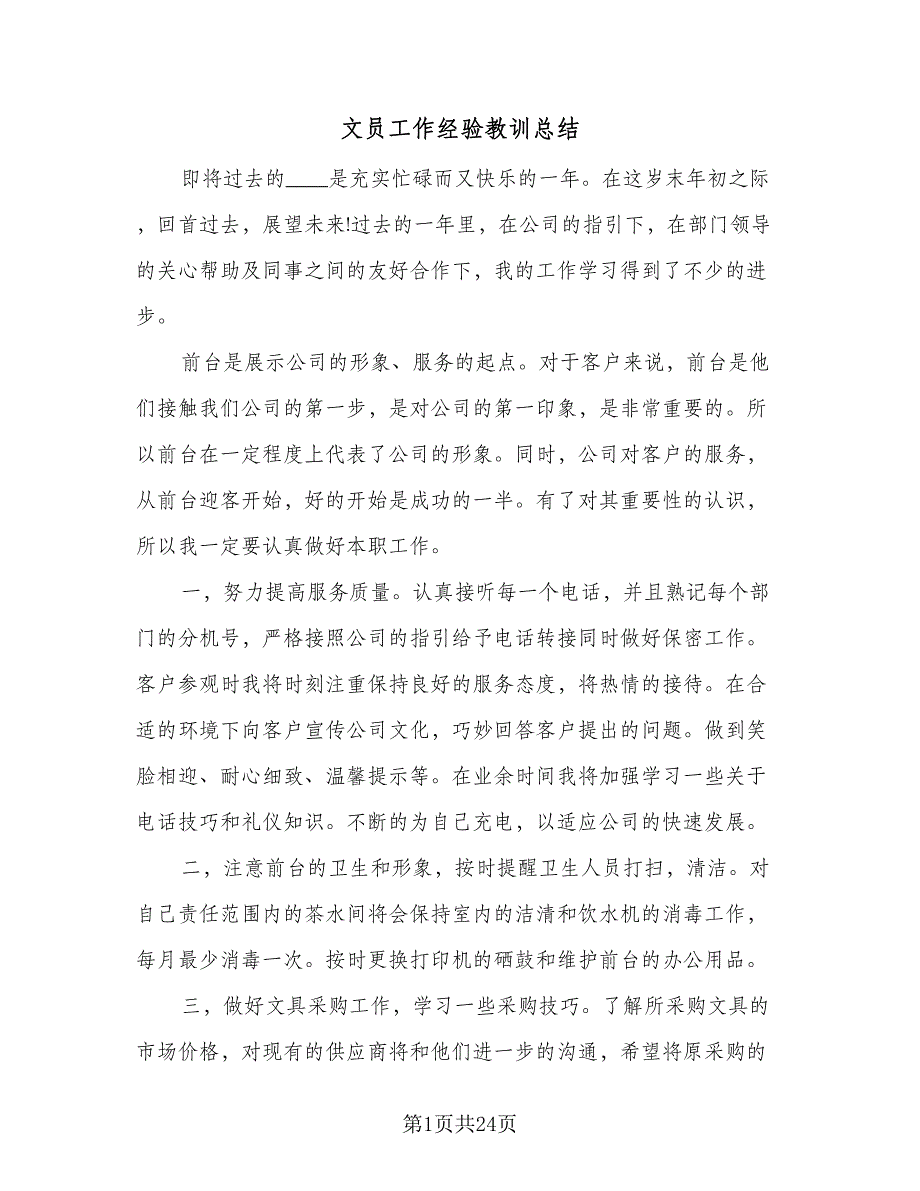 文员工作经验教训总结
即将过去的____是充实忙碌而又快乐的一年。在这岁末年初之际
，回首过去，展望未来!过去的一年里，在公司的指引下，在部门领导
的关心帮助及同事之间的友好合作下，我的工作学习得到了不少的进
步。
前台是展示公司的形象、服务的起点。对于客户来说，前台是他
们接触我们公司的第一步，是对公司的第一印象，是非常重要的。所
以前台在一定程度上代表了公司的形象。同时，公司对客户的服务，
从前台迎客开始，好的开始是成功的一半。有了对其重要性的认识，
所以我一定要认真做好本职工作。
一，努力提高服务质量。认真接听每一个电话，并且熟记每个部
门的分机号，严格按照公司的指引给予电话转接同时做好保密工作。
客户参观时我将时刻注重保持良好的服务态度，将热情的接待。在合
适的环境下向客户宣传公司文化，巧妙回答客户提出的问题。做到笑
脸相迎、耐心细致、温馨提示等。在业余时间我将加强学习一些关于
电话技巧和礼仪知识。不断的为自己充电，以适应公司的快速发展。
二，注意前台的卫生和形象，按时提醒卫生人员打扫，清洁。对
自己责任范围内的茶水间将会保持室内的洁清和饮水机的消毒工作，
每月最少消毒一次。按时更换打印机的硒鼓和维护前台的办公用品。
三，做好文具采购工作，学习一些采购技巧。了解所采购文具的
市场价格，对现有的供应商将和他们进一步的沟通，希望将原采购的
第1页共24页